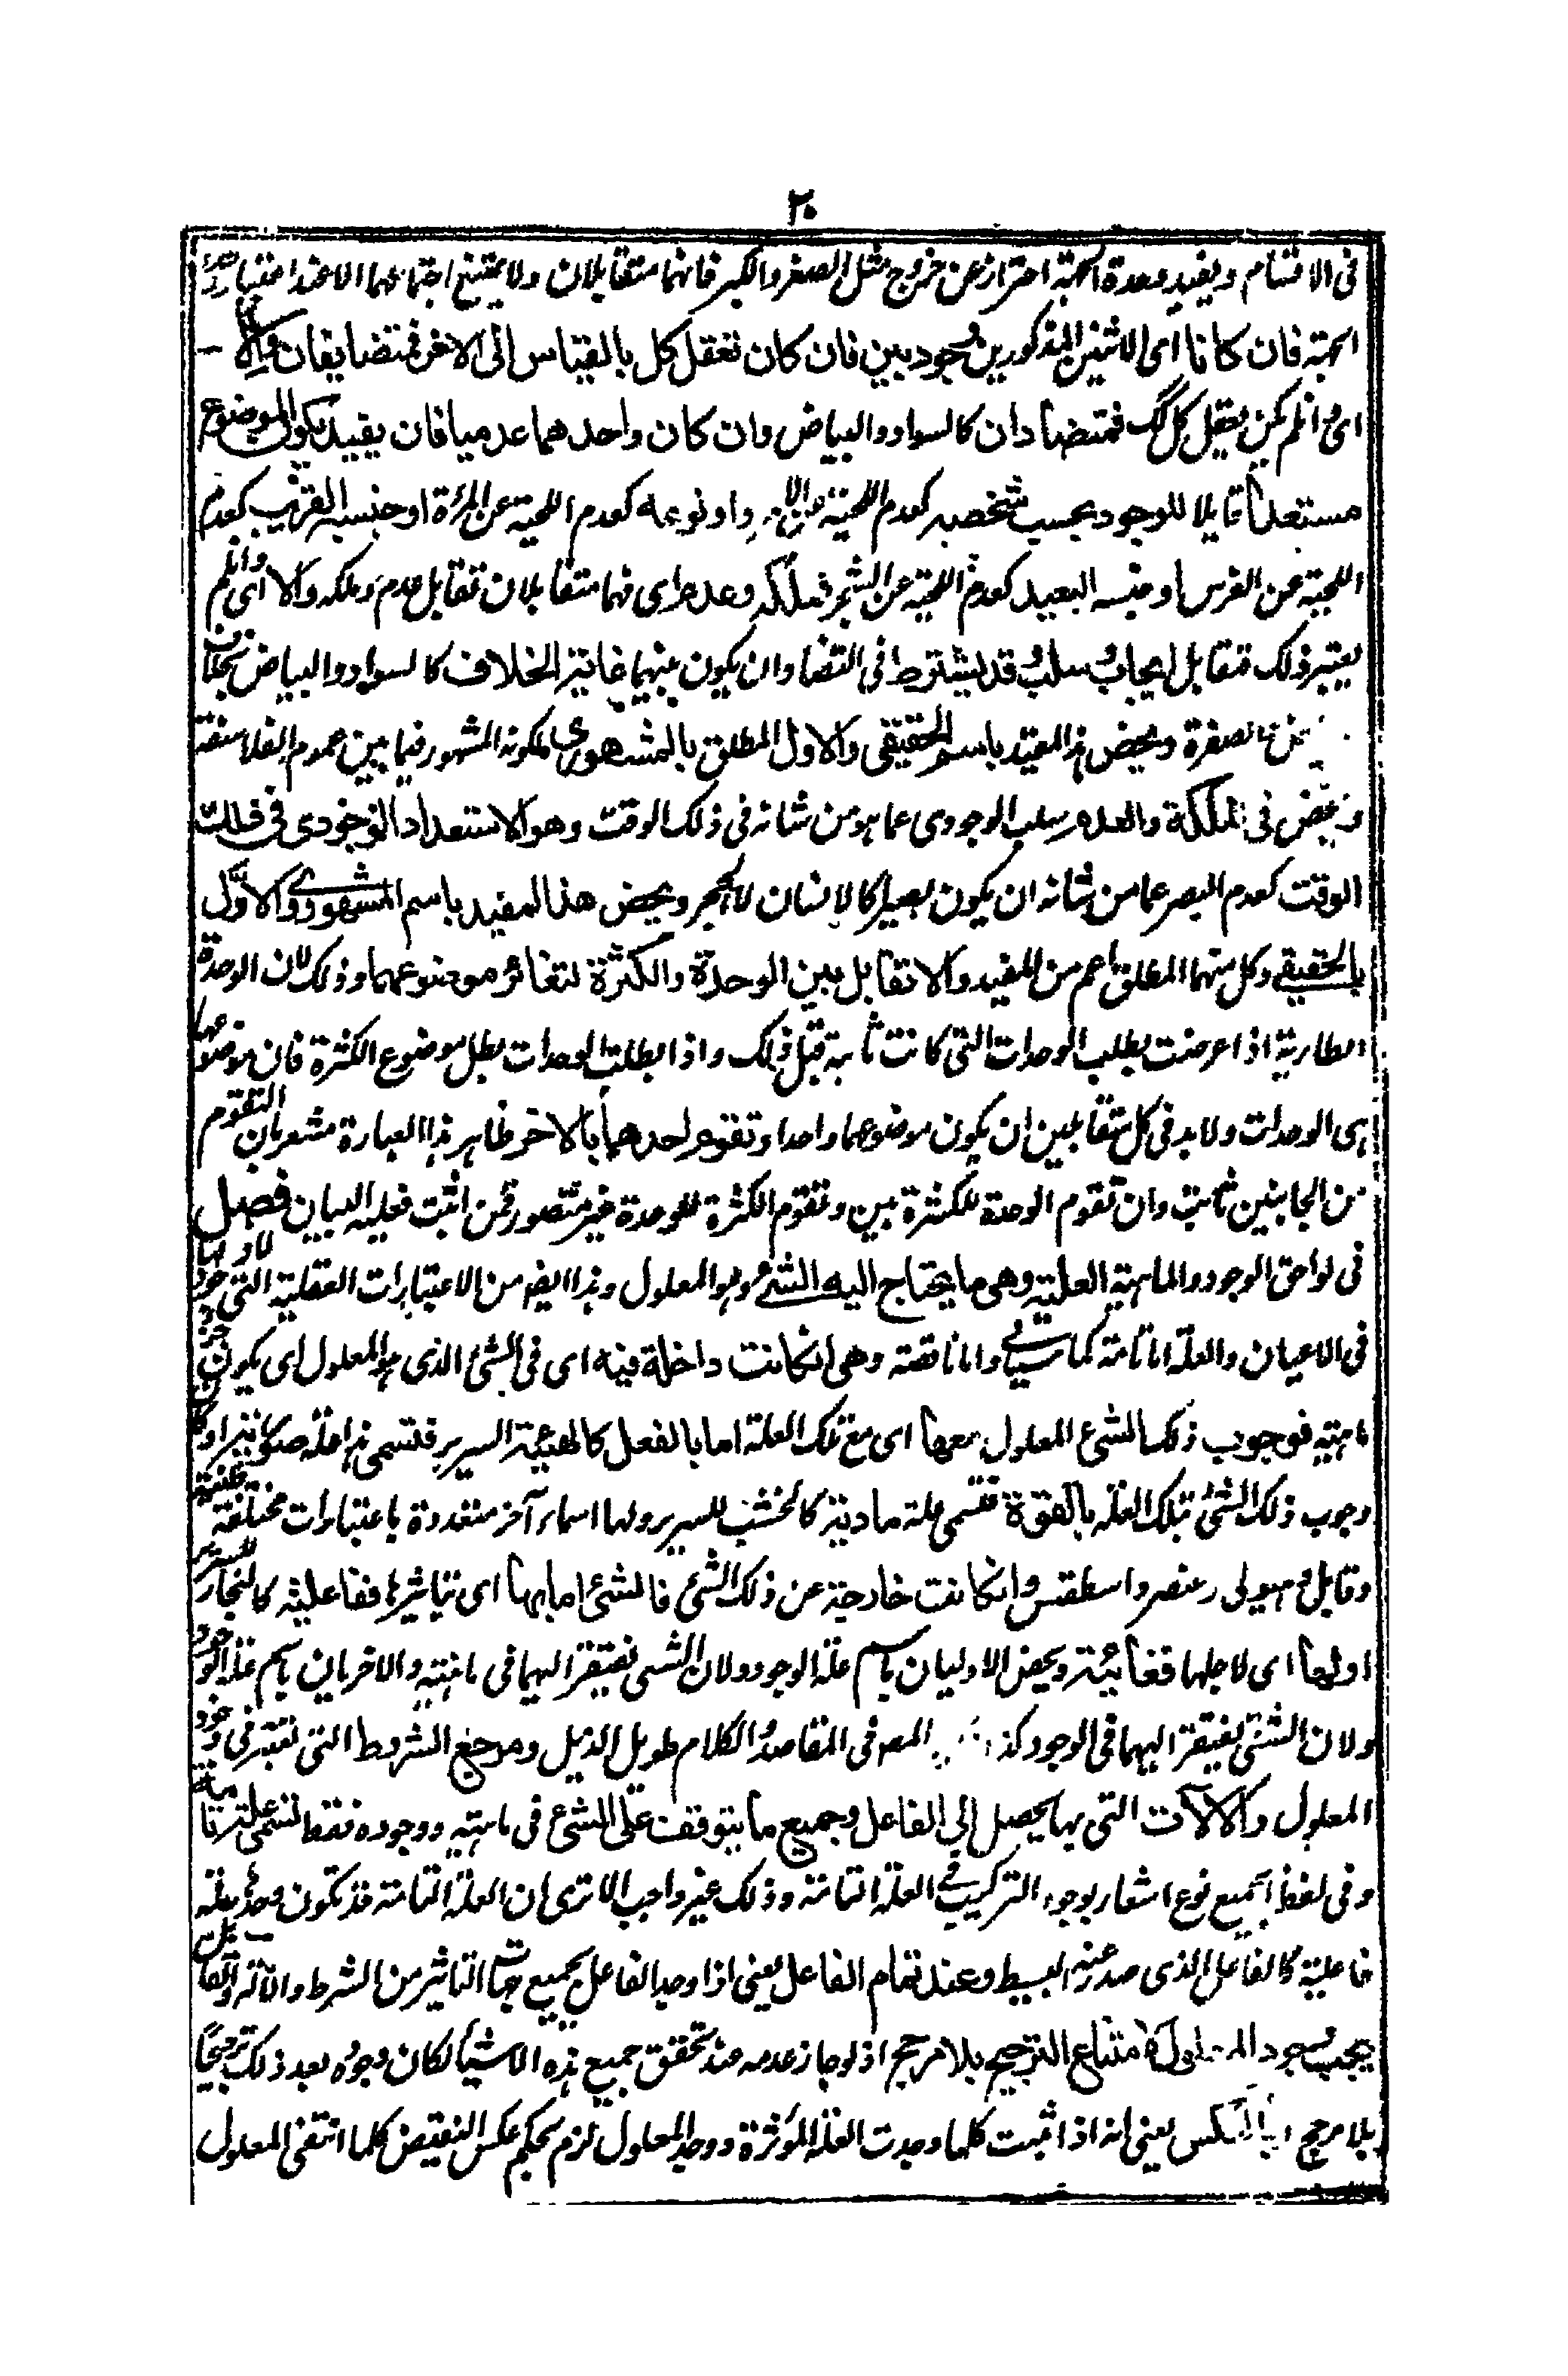 ٢٠
فى الاقسام وبقيد وحدة الجهة احتراز عن خروج مثل الصغر والكبر فانهما متقابلان ولا يمتنع اجتماعهما الا عند اعتبار وحدة
الجهة فان كانا اى الاثنين المذكورين وجوديين فان كان تعقل كل بالقياس الى الاخر فمتضايفان والا
اى وانلم يكن يعقل كل كك فمتضادان كالسواد والبياض وان كان واحدهما عدميا فان يقيد بكون الموضوع
مستعدا قابلا للوجود بحسب شخصه كعدم اللحية عن الامرد او نوعه كعدم اللحية عن المرءة او جنسه القريب كعدم
اللحية عن الفرس او جنسه البعيد كعدم اللحية عن الشجر فملكة وعدم اى فهما متقابلان تقابل عدم وملكه والا اى وانلم
يعتبر ذلك فتقابل ايجاب وسلب قد يشترط فى التضاد ان يكون بينهما غاية الخلاف كالسواد والبياض بخلاف
الصفرة ويخص هذا المقيد باسم الحقيقى والاول المطلق بالمشهورى لكونه المشهور فيما بين عموم الفلاسفة
فى الملكة والعدم سلب الوجودى عما هو من شانه فى ذلك الوقت وهو الاستعداد الوجودى فى ذلك
الوقت كعدم البصر عما من شانه ان يكون بصيرا كالانسان لا الحجر ويخص هذا المقيد باسم المشهورى والاول
بالحقيقى وكل منهما المطلق اعم من المقيد والا تقابل بين الوحدة والكثرة لتغائر موضوعهما وذلك لان الوحدة
الطارية اذا عرضت بطلب الوحدات التى كانت ثابتة قبل ذلك واذا بطلت الوحدات بطل موضوع الكثرة فان موضوعها
هى الوحدات ولابد فى كل متقابلين ان يكون موضوعهما واحدا وتقوم احدهما بالاخر ظاهر هذا العبارة مشعر بان التقوم
من الجانبين ثابت وان تقوم الوحدة للكثرة بين وتقوم الكثرة للوحدة غير متصور فمن اثبت فعليه البيان فصل
فى لواحق الوجود والماهية العلية وهى ما يحتاج اليه الشئ وهو المعلول وهذا ايضا من الاعتبارات العقلية التى لا وجود لها
فى الاعيان والعلة اما تامة كما سياتى واما ناقصة وهى ان كانت داخلة فيه اى فى الشئ الذى هو المعلول اى يكون جزء
ماهيته فوجوب ذلك الشئ المعلول معها اى مع تلك العلة اما بالفعل كالهيئة السرير فتسمى هذا علة صورية او كان
وجوب ذلك الشئ بتلك العلة بالقوة فتسمى علة مادية كالخشب للسرير ولها اسماء آخر متعددة باعتبارات مختلفة
وقابل وهيولى وعنصر واسطقس وان كانت خارجة عن ذلك الشئ فالشئ اما بها اى بتاثيرها ففاعلية كالنجار للسرير
او لها اى لاجلها فغائية ويخص الاوليان باسم علة الوجود ولان الشئ يفتقر اليهما فى ماهيته والاخريان باسم علة الوجود
ولان الشئ يفتقر اليهما فى الوجود كذا المصه فى المقاصد والكلام طويل الذيل ومرجع الشروط التى تعتبر فى وجود
المعلول والآلات التى بها يحصل الى الفاعل وجميع ما يتوقف على الشئ فى ماهيته ووجوده فقط تسمى علة تامة
وفى لفظ الجميع نوع اشعار بوجود التركيب فى العلة التامة وذلك غير واجب الا ترى ان العلة التامة قد تكون وحدها علة
فاعلية كالفاعل الذى صدر عنه البسيط وعند تمام الفاعل يعنى اذا وجد الفاعل بجميع جهات التاثير من الشرط والآلة والقابل
يجب وجود المعلول لامتناع الترجيح بلا مرجح اذ لو جاز عدمه عند تحقق جميع هذه الاشياء لكان وجوده بعد ذلك ترجيحا
بلا مرجح وبالعكس يعنى انه اذا ثبت كلما وجدت العلة المؤثرة ووجد المعلول لزم بحكم عكس النقيض كلما انتفى المعلول